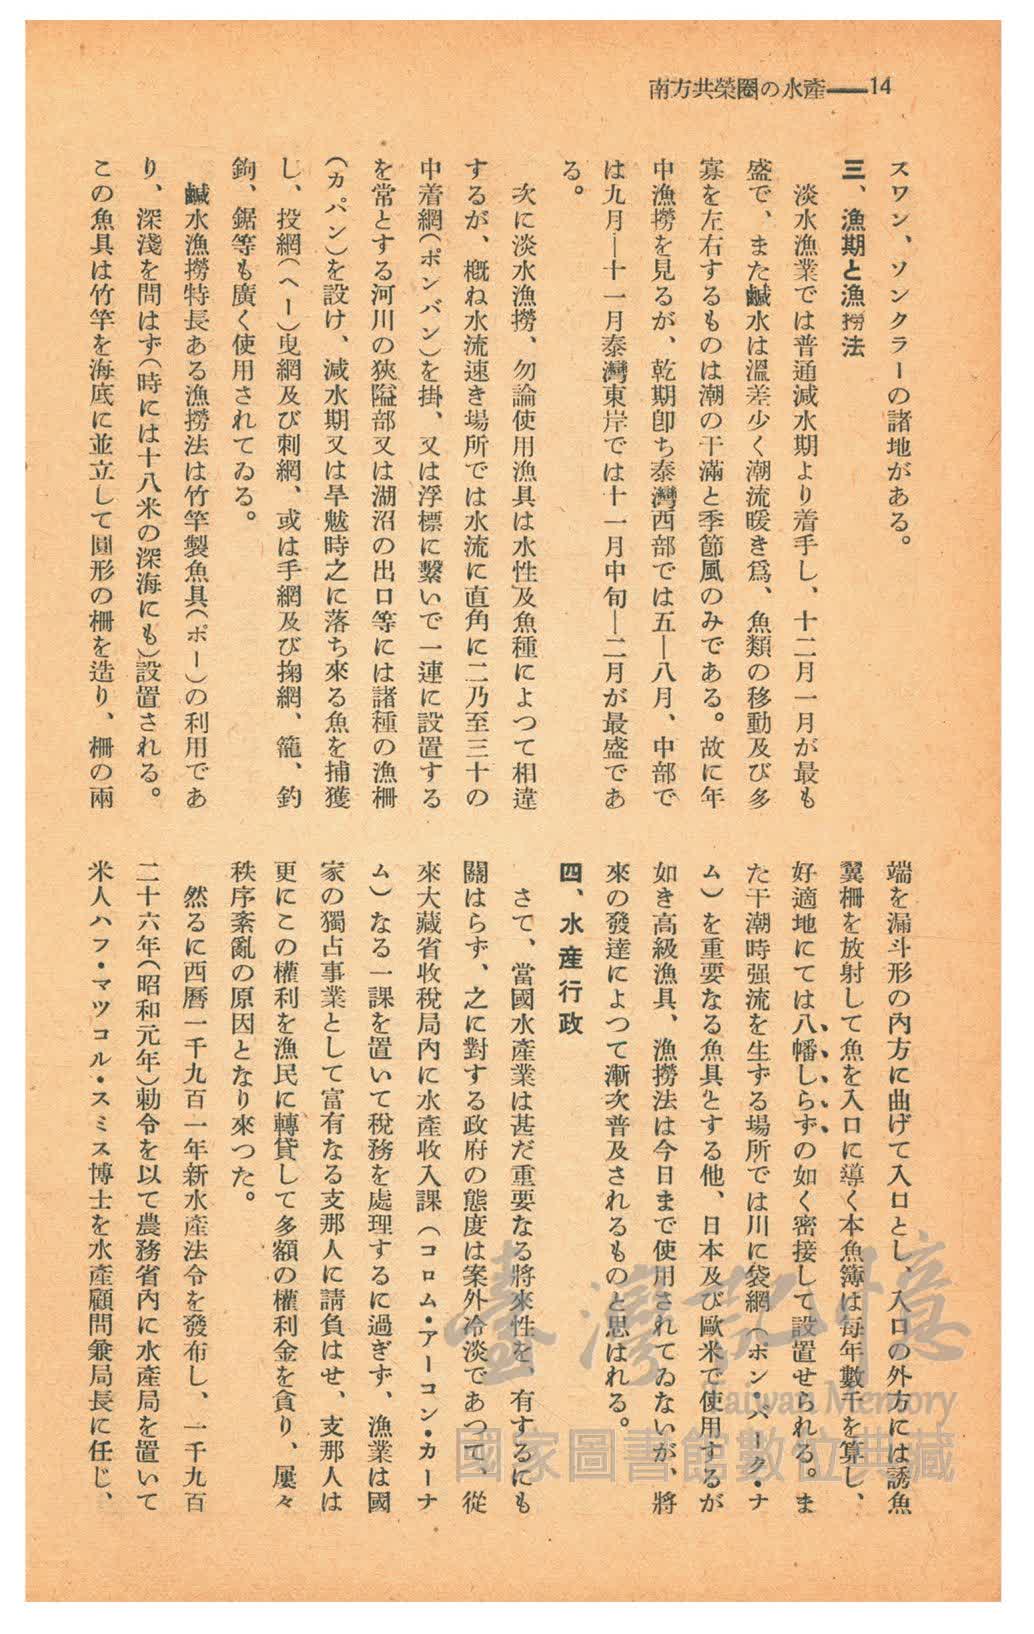 南方共榮圈の水產——14
スワン、ソンクラーの諸地がある。
三、漁期と漁撈法
淡水漁業では普通減水期より着手し、十二月一月が最も
盛で、また鹹水は溫差少く潮流暖き爲、魚類の移動及び多
寡を左右するものは潮の干滿と季節風のみである。故に年
中漁撈を見るが、乾期卽ち泰灣西部では五—八月、中部で
は九月—十一月泰灣東岸では十一月中旬—二月が最盛であ
る。
次に淡水漁撈、勿論使用漁具は水性及魚種によつて相違
するが、槪ね水流速き場所では水流に直角に二乃至三十の
中着網(ポンバン)を掛、又は浮標に繫いで一連に設置する
を常とする河川の狹隘部又は湖沼の出口等には諸種の漁柵
(カパン)を設け、減水期又は旱魃時之に落ち來る魚を捕獲
し、投網(ヘー)曳網及び刺網、或は手網及び掬網、籠、釣
鉤、鋸等も廣く使用されてゐる。
鹹水漁撈特長ある漁撈法は竹竿製魚具(ポー)の利用であ
り、深淺を問はず(時には十八米の深海にも)設置される。
この魚具は竹竿を海底に並立して圓形の柵を造り、柵の兩
端を漏斗形の內方に曲げて入口とし、入口の外方には誘魚
翼柵を放射して魚を入口に導く本魚簿は每年數千を算し、
好適地にては八幡しらずの如く密接して設置せられる。ま
た干潮時强流を生ずる場所では川に袋網(ポン・パーク・ナ
ム)を重要なる魚具とする他、日本及び歐米で使用するが
如き高級漁具、漁撈法は今日まで使用されてゐないが、將
來の發達によつて漸次普及されるものと思はれる。
四、水產行政
さて、當國水產業は甚だ重要なる將來性を、有するにも
關はらず、之に對する政府の態度は案外冷淡であつて、從
來大藏省收稅局內に水產收入課(コロム・アーコン・カーナ
ム)なる一課を置いて稅務を處理するに過ぎず、漁業は國
家の獨占事業として富有なる支那人に請負はせ、支那人は
更にこの權利を漁民に轉貸して多額の權利金を貪り、屢々
秩序紊亂の原因となり來つた。
然るに西曆一千九百一年新水產法令を發布し、一千九百
二十六年(昭和元年)勅令を以て農務省內に水產局を置いて
米人ハフ・マツコル・スミス博士を水產顧問兼局長に任じ、
臺灣記憶
Taiwan Memory
國家圖書館數位典藏